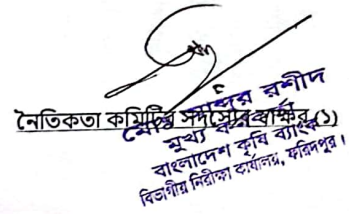 নৈতিকতা কমিটির সদস্যের স্বাক্ষর (১)
রশীদ
মুখ্য
বাংলাদেশ কৃষি ব্যাংক
বিভাগীয় নিরীক্ষা কার্যালয়, ফরিদপুর।